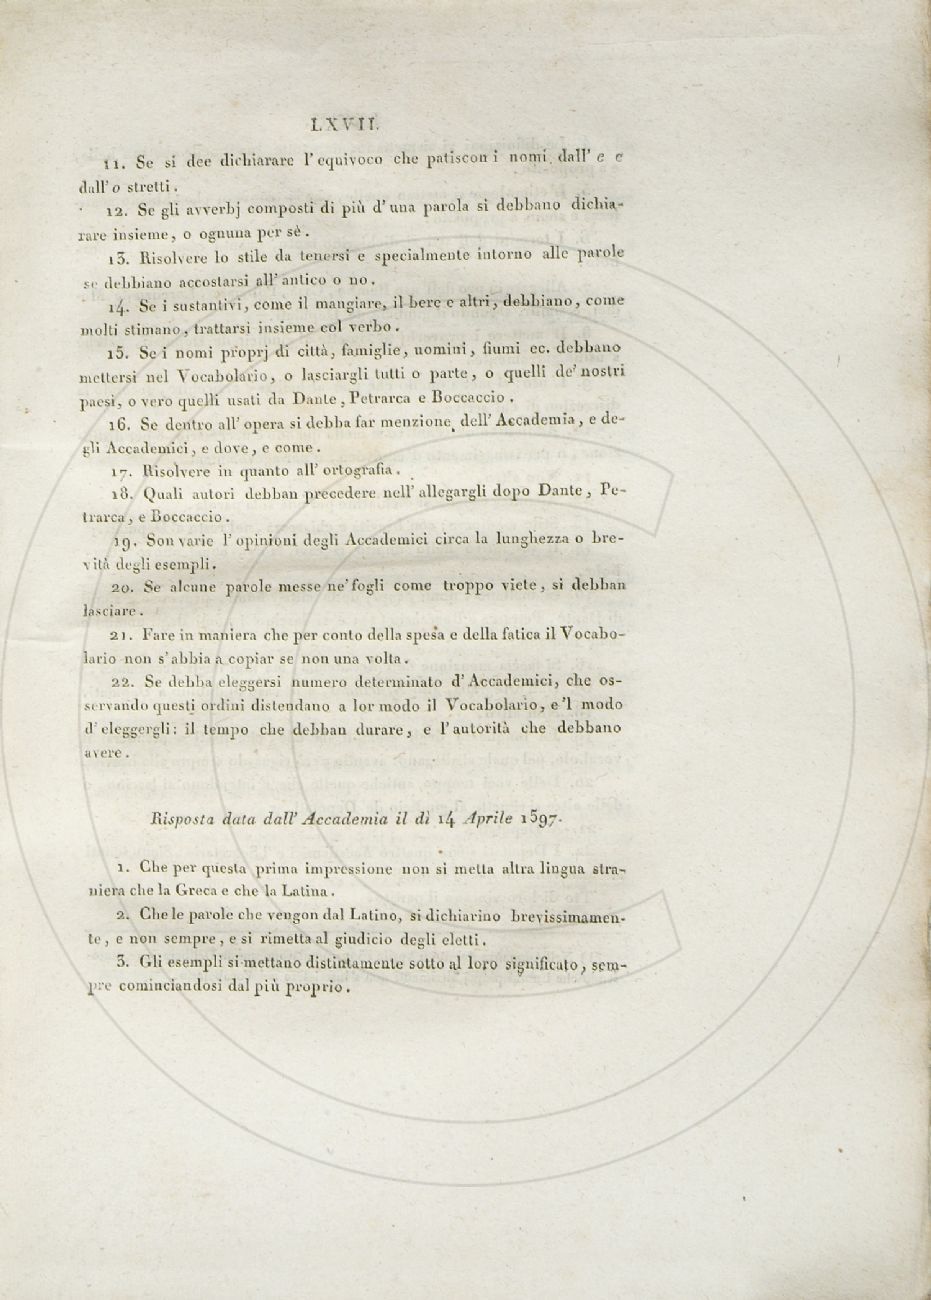 LXVII.
11. Se si dee dichiarare l'equivoco che patiscon i nomi dall' e e
dall' o stretti.
12. Se gli avverbj composti di più d'una parola si debbano dichia-
rare insieme, o ognuna per sè.
13. Risolvere lo stile da tenersi e specialmente intorno alle parole
se debbiano accostarsi all'antico o no.
14. Se i sustantivi, come il mangiare, il bere e altri, debbiano, come
molti stimano, trattarsi insieme col verbo.
15. Se i nomi proprj di città, famiglie, uomini, fiumi ec. debbano
mettersi nel Vocabolario, o lasciargli tutti o parte, o quelli de' nostri
paesi, o vero quelli usati da Dante, Petrarca e Boccaccio.
16. Se dentro all'opera si debba far menzione dell'Accademia, e de-
gli Accademici, e dove, e come.
17. Risolvere in quanto all'ortografia.
18. Quali autori debban precedere nell'allegargli dopo Dante, Pe-
trarca, e Boccaccio.
19. Son varie l'opinioni degli Accademici circa la lunghezza o bre-
vità degli esempli.
20. Se alcune parole messe ne' fogli come troppo viete, si debban
lasciare.
21. Fare in maniera che per conto della spesa e della fatica il Vocabo-
lario non s'abbia a copiar se non una volta.
22. Se debba eleggersi numero determinato d'Accademici, che os-
servando questi ordini distendano a lor modo il Vocabolario, e 'l modo
d'eleggergli: il tempo che debban durare, e l'autorità che debbano
avere.
Risposta data dall'Accademia il dì 14 Aprile 1597.
1. Che per questa prima impressione non si metta altra lingua stra-
niera che la Greca e che la Latina.
2. Che le parole che vengon dal Latino, si dichiarino brevissimamen-
te, e non sempre, e si rimetta al giudicio degli eletti.
3. Gli esempli si mettano distintamente sotto al loro significato, sem-
pre cominciandosi dal più proprio.